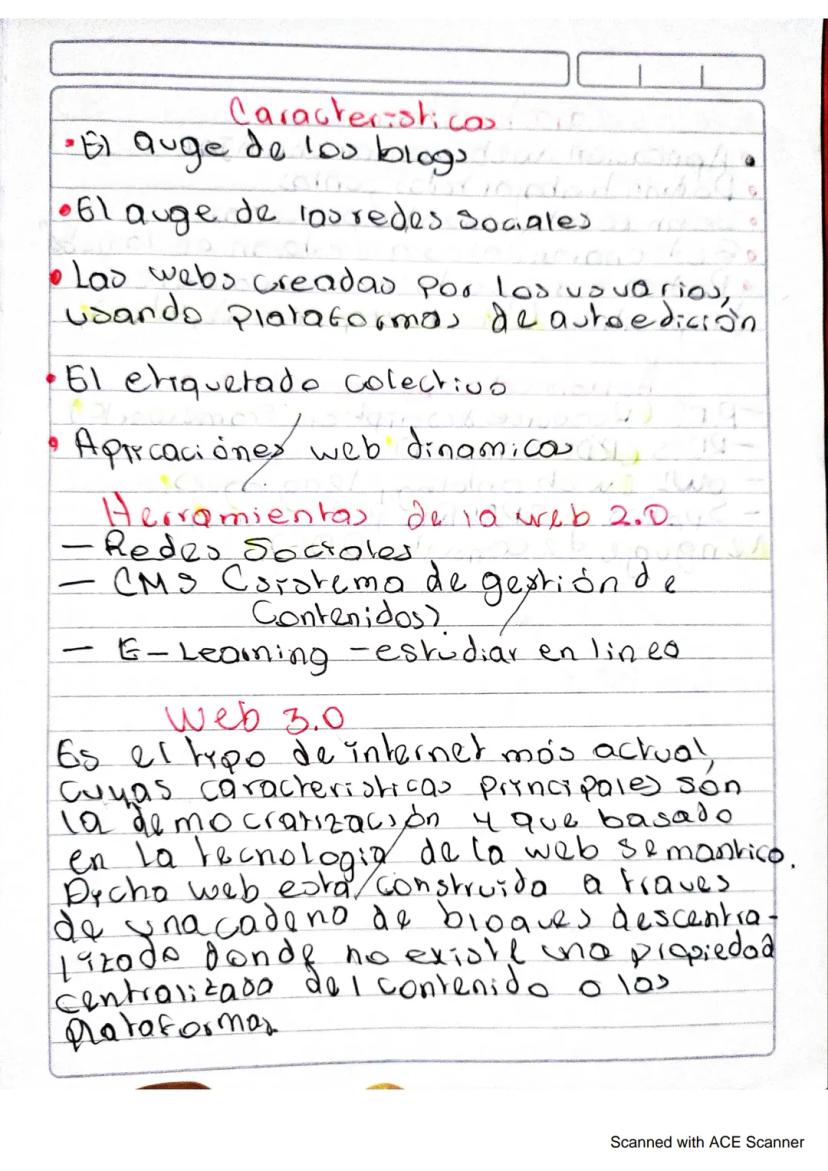 Caracteristicas
• El auge de los blogs
• El auge de las redes sociales
• Las webs creadas por los usuarios,
usando plataformas de autoedición
• El etiquetado colectivo
• Aplicaciónes web dinamicas
Herramientas de la web 2.0
— Redes Sociales
— CMS (sistema de gestión de
Contenidos)
— E-Learning - estudiar en linea
Web 3.0
Es el tipo de internet más actual,
cuyas caracteristicas principales són
la democratización y que basado
en la tecnologia de la web semantica.
Dicha web está construida a traves
de una cadena de bloques descentra-
lizada donde no existe una propiedad
centralizada del contenido o las
plataformas
Scanned with ACE Scanner